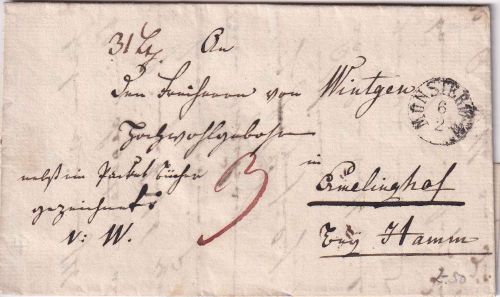 31 Lt.
An
den Freiherrn von Wintgen
Hochwohlgeboren
nebst ein Packet Bücher
gezeichnet:
v: W.
3
in
Ermelinghof
bey Hamm
MÜNSTER
6
2
2.50